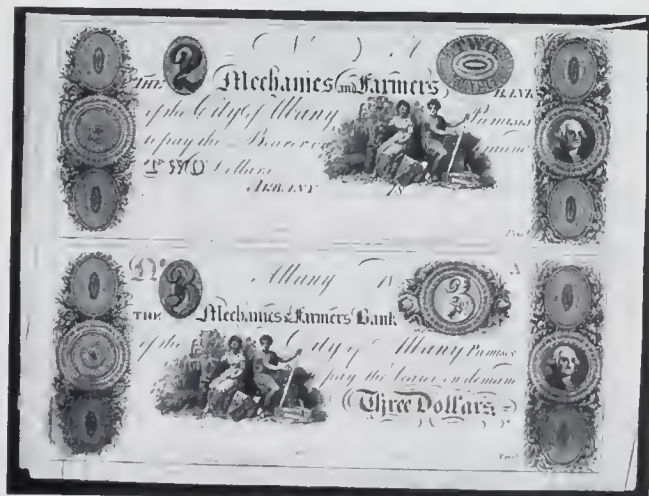 2 TWO
THE Mechanics and Farmers BANK
of the City of Albany Promises
to pay the Bearer on demand
TWO Dollars
ALBANY 18
No. Albany 18 A
3 3
THE Mechanics & Farmers Bank
of the City of Albany Promises
pay the bearer on demand
Three Dollars